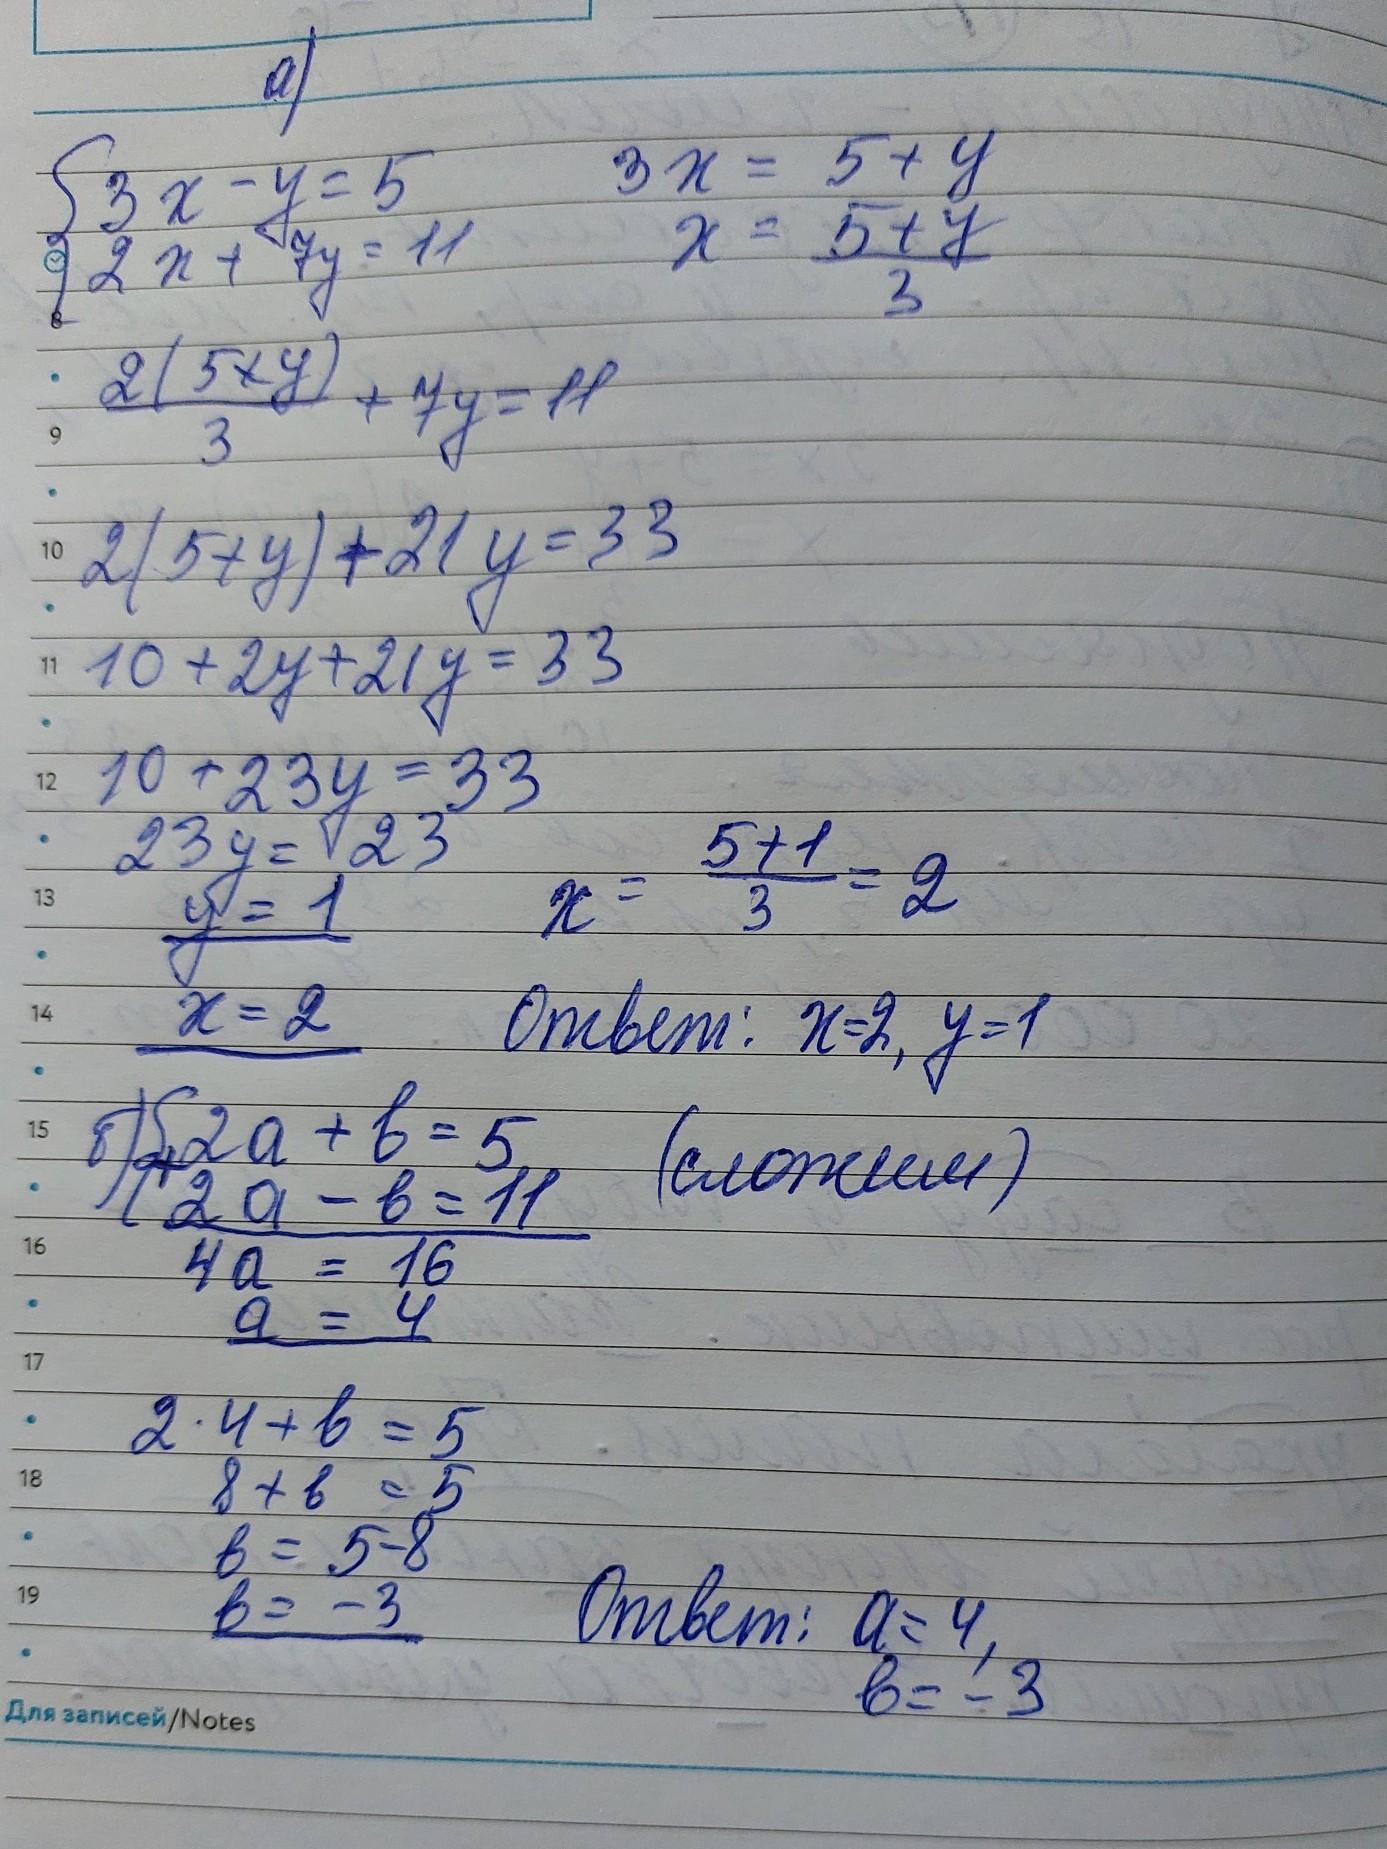 а)
{3x - y = 5
2x + 7y = 11
3x = 5 + y
x = (5+y)/3
8
2(5+y)/3 + 7y = 11
9
10 2(5+y) + 21y = 33
11 10 + 2y + 21y = 33
12 10 + 23y = 33
23y = 23
13 y = 1
x = (5+1)/3 = 2
14 x = 2 Ответ: x=2, y=1
15 б) {2a + b = 5 (сложим)
+ 2a - b = 11
16 4a = 16
a = 4
17
2·4 + b = 5
18 8 + b = 5
b = 5-8
19 b = -3 Ответ: a = 4,
b = -3
Для записей/Notes